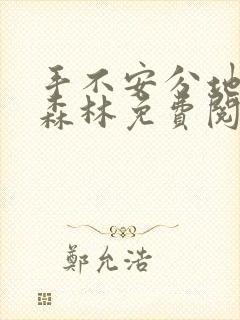 手不安分地
森林免費閱
鄭允浩